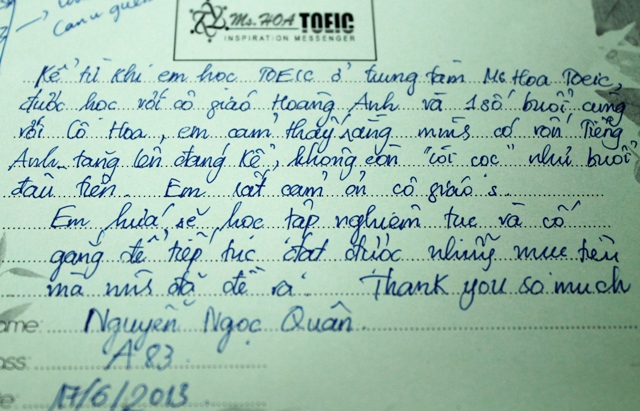 can u
Ms. HOA TOEIC
INSPIRATION MESSENGER
Kể từ khi em học TOEIC ở trung tâm Ms Hoa Toeic,
được học với cô giáo Hoàng Anh và 1 số buổi cùng
với Cô Hoa, em cảm thấy rằng mình có vốn Tiếng
Anh tăng lên đáng kể, không còn "còi cọc" như buổi
đầu tiên. Em rất cảm ơn cô giáo's
Em hứa, sẽ học tập nghiêm túc và cố
gắng để tiếp tục đạt được những mục tiêu
mà mình đã đề ra. Thank you so much
ame: Nguyễn Ngọc Quân
ass: A83
te: 17/6/2013